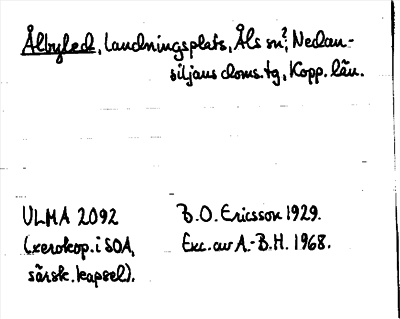 Ålbyled, landningsplats, Åls sn?, Nedan-
siljans doms.tg, Kopp. län.
ULMA 2092 B.O. Ericsson 1929.
(xerokop. i SOA, Exc. av A.-B.H. 1968.
särsk. kapsel).